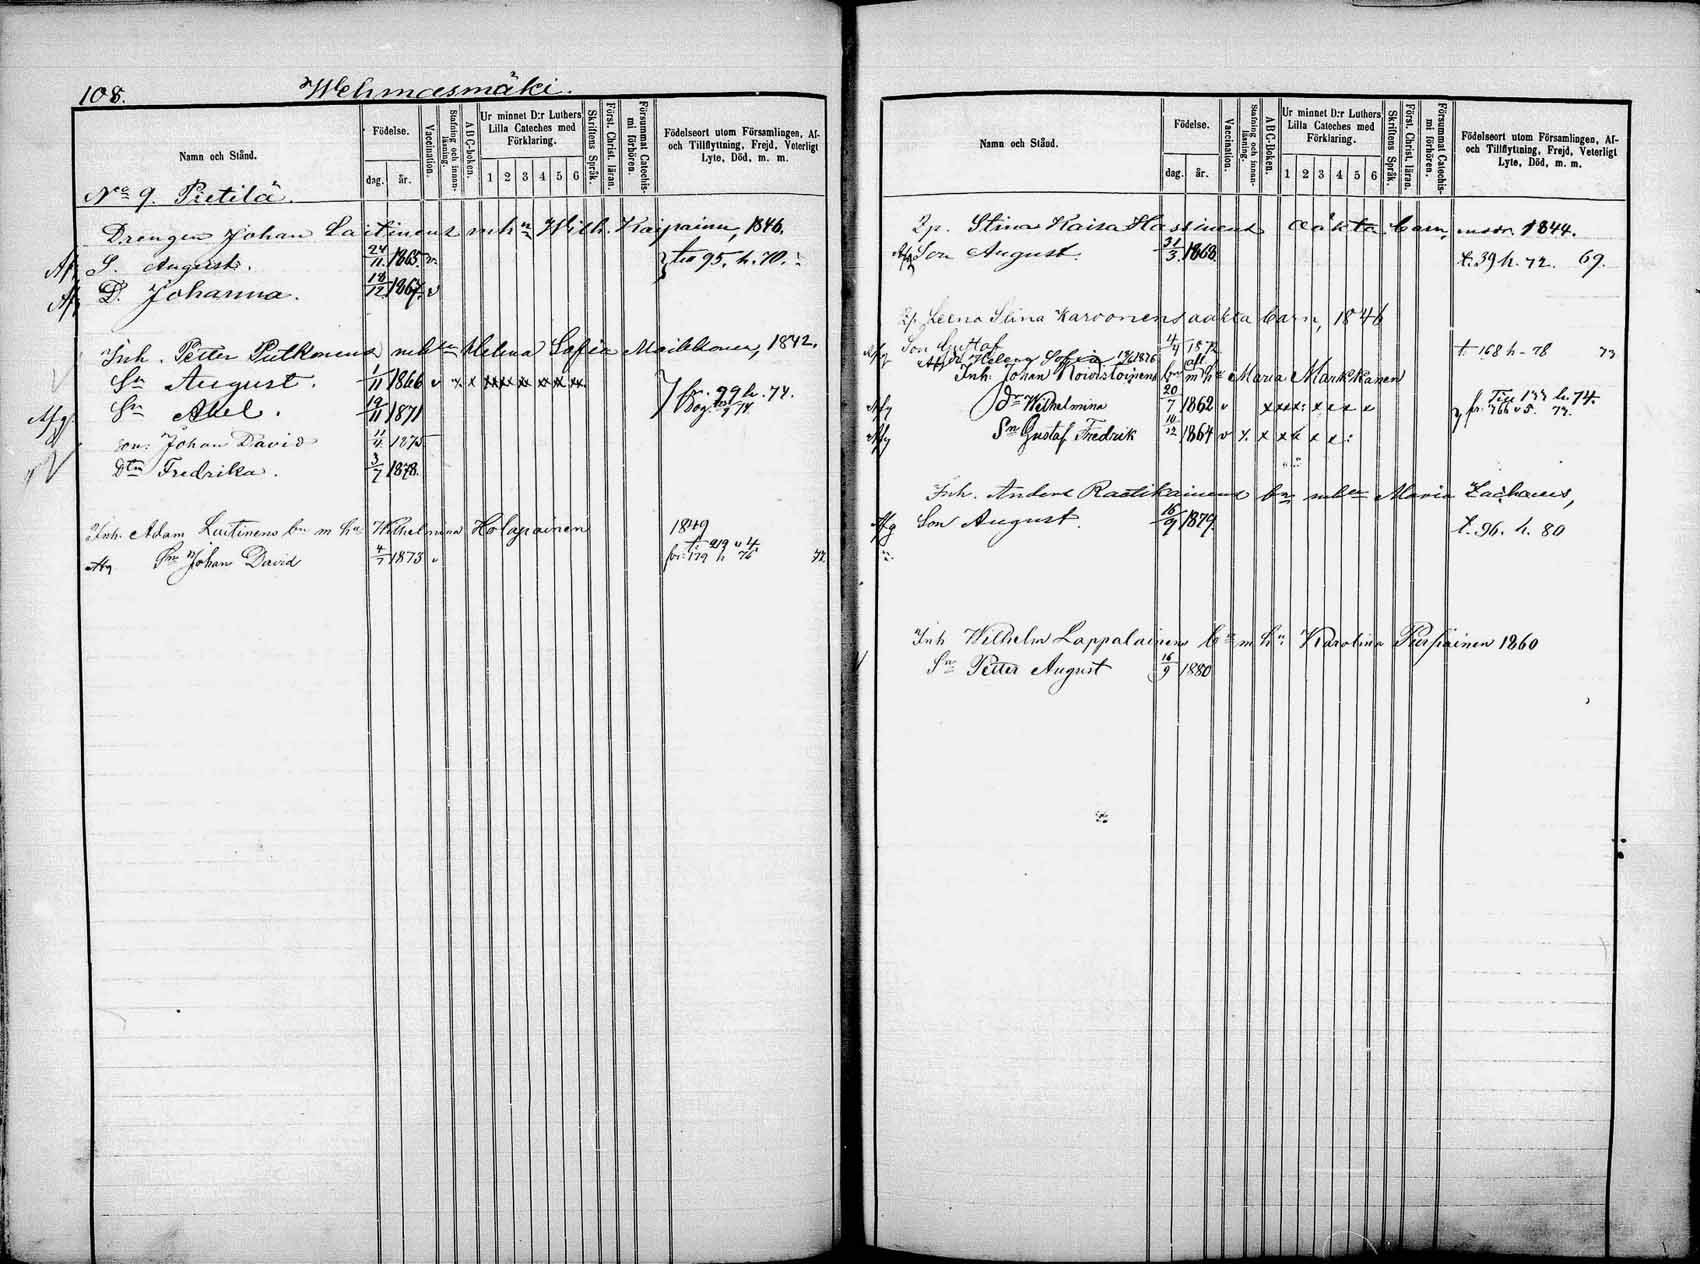 108.
Wehmasmäki.
Namn och Stånd.
Födelse.
dag.
år.
Vaccination.
Stafning och innan-
läsning.
ABC-boken.
Ur minnet D:r Luthers
Lilla Cateches med
Förklaring.
1 2 3 4 5 6
Skriftens Språk.
Först. Christ. läran.
Försummat Catechis-
mi förhören.
Födelseort utom Församlingen, Af-
och Tillflyttning, Frejd, Veterligt
Lyte, Död, m. m.
No 9. Pietilä.
Drengen Johan Laitinens m hu Wilh. Kaipainen, 1846.
Afg S. August. 24/11 1865. v. till 95. h. 70.
Afg D. Johanna. 18/12 1867. v
Inh. Petter Putkonens m hu Helena Sofia Maikkonen, 1842.
Sn August. 1/11 1866 v x x xx xx xx xx xx xx
fr. 99 h. 74.
Afg. Sn Abel. 19/11 1871
son: Johan David 11/4 1875
Dtr Fredrika. 3/7 1878.
Inh. Adam Luitinens bn m hu Wilhelmina Holopainen 1849
Afg Sn Johan David 4/7 1873 v
Namn och Stånd.
Födelse.
dag.
år.
Vaccination.
Stafning och innan-
läsning.
ABC-Boken.
Ur minnet D:r Luthers
Lilla Cateches med
Förklaring.
1 2 3 4 5 6
Skriftens Språk.
Först. Christ. läran.
Försummat Catechis-
mi förhören.
Födelseort utom Församlingen, Af-
och Tillflyttning, Frejd, Veterligt
Lyte, Död, m. m.
Stina Kaisa Hassinens oäkta barn, 1844.
Afg Son August. 31/3 1868. t. 39 h. 72. 69.
Leena Stina Karvonens oäkta barn, 1846
Afg Son Gustaf 14/4 1872 t 168 h 78 73
Afg Dr Helena Sofia 1876
Inh. Johan Koivistoinens bn m hu Maria Markkanen
Afg dr Wilhelmina 20/7 1862 v x x x x x x x Till 133 h. 74.
Afg Sn Gustaf Fredrik 10/12 1864 v x. x x x x x :
Inh. Anders Rautikainens bn m hu Maria Zachæus,
Afg Son August. 16/9 1879. t. 96. h. 80
Inh Wilhelm Lappalainens bn m hu Karolina Pirskainen 1860
Sn Petter August 16/9 1880